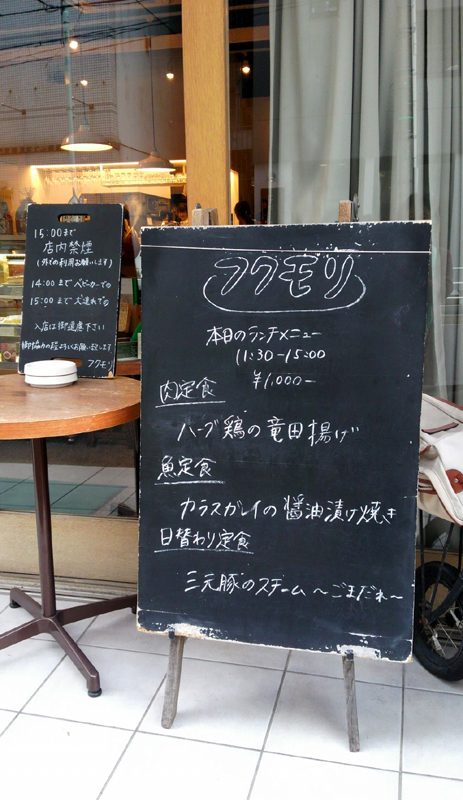 15:00まで
店内禁煙
(外での利用お願いします)
14:00まで ベビーカーでの
15:00まで 犬連れでの
入店は御遠慮下さい
御協力の程よろしくお願い致します
フクモリ
フクモリ
本日のランチメニュー
11:30-15:00
¥1,000-
肉定食
ハーブ鶏の竜田揚げ
魚定食
カラスガレイの醤油漬け焼き
日替わり定食
三元豚のスチーム 〜ごまだれ〜